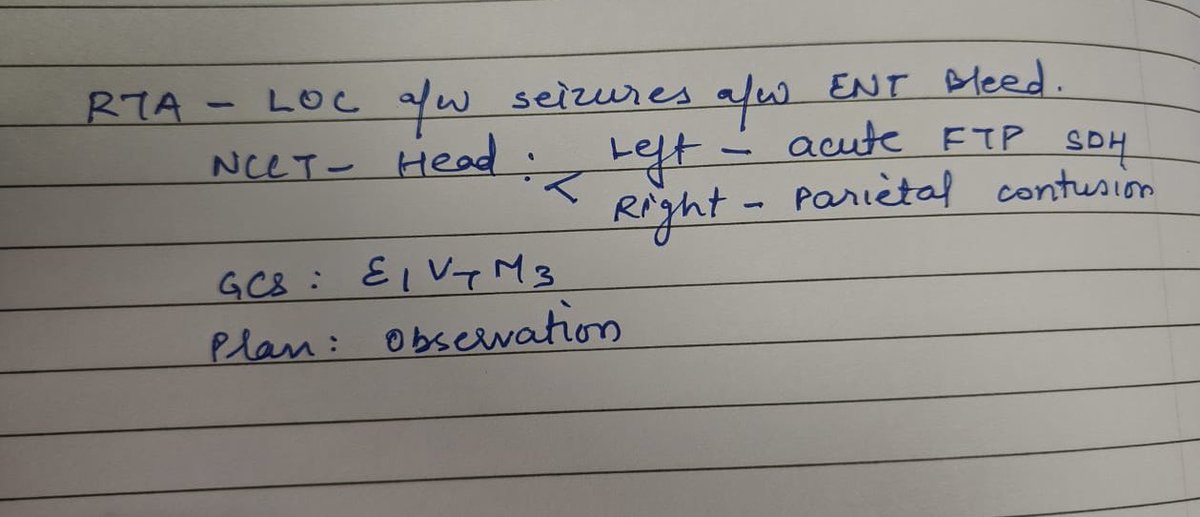 RTA - LOC a/w seizures a/w ENT Bleed.
NCCT - Head : < Left - acute FTP SDH
Right - Parietal contusion
GCS : E1 VT M3
Plan : Observation